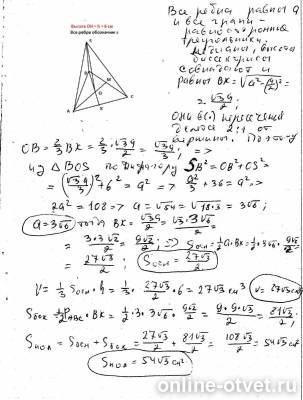 Высота OH = h = 6 см
Все ребра обозначим a
Все ребра равны a
и все грани -
равносторонние
треугольники.
медианы, высоты
биссектрисы
совпадают и
равны BK = √(a² - (a/2)²) =
= √3a/2;
Они в т. пересечения
делятся 2:1 от
вершины. Поэтому
OB = 2/3 BK = 2/3 · √3a/2 = √3a/3; =>
из △BOS по Пифагору SB² = OB² + OS² =
= (√3a/3)² + 6² = a² => a²/3 + 36 = a² =>
2a² = 108 => a = √54 = √(18·3) = 3√6;
a = 3√6 тогда BK = √3a/2 = √3·3√6/2 =
= 3·3√2/2 = 9√2/2; => Sосн = 1/2 a·BK = 1/2 · 3√6 · 9√2/2 =
= 27√3/2; Sосн = 27√3/2
V = 1/3 Sосн · h = 1/3 · 27√3/2 · 6 = 27√3 см³ V = 27√3 см³
Sбок = 1/2 PABC · BK = 1/2 · 3 · 3√6 · 9√2/2 = 9·9√3/2 = 81√3/2;
Sпол = Sосн + Sбок = 27√3/2 + 81√3/2 = 108√3/2 = 54√3 см²
Sпол = 54√3 см²
online-otvet.ru